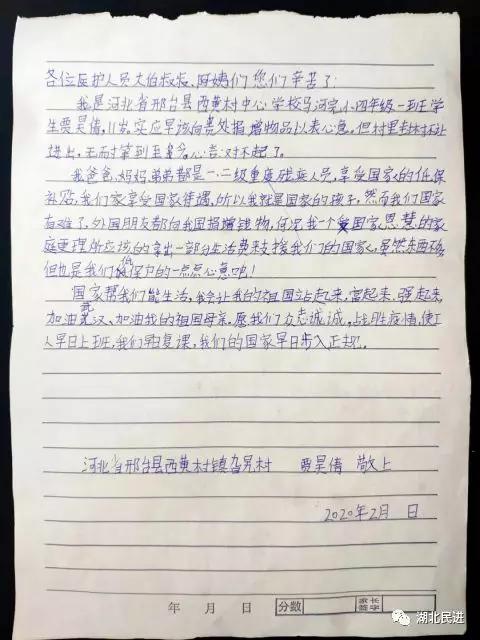 各位医护人员大伯叔叔、阿姨们您们辛苦了：
我是河北省邢台县西黄村中心学校马河完小四年级一班学
生贾昊倩，11岁，实应早该向贵处捐增物品以表心意。但村里封村不让
进出，无而才拿到至今心意，对不起了。
我爸爸、妈妈、弟弟都是一、二级重度残疾人员，享受国家的低保
补贴，我们家享受国家待遇，所以我就是国家的孩子，然而我们国家
有难了，外国朋友都向我国捐增钱物，何况我一个国家恩惠的家
庭更理所应该的拿出一部分生活费来支援我们的国家，虽然东西不多
但也是我们低保户的一点点心意吧！
国家帮我们能生活，我会让我的祖国站起来，富起来，强起来，
加油武汉、加油我的祖国母亲，愿我们众志诚诚，战胜疫情，使工
人早日上班，我们早复课，我们的国家早日步入正规。
河北省邢台县西黄村镇 村 贾昊倩 敬上
2020年2月 日
年 月 日 分数 家长签字
湖北民进